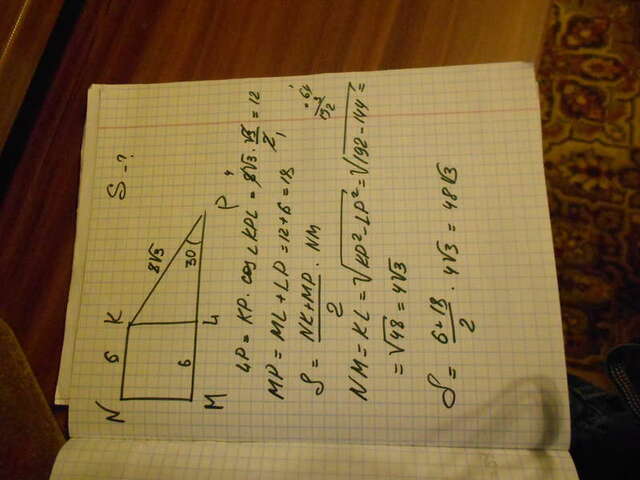 S - ?
N 6 K
8√3
6 30
M L P
LP = KP · cos ∠KPL = 8√3 · √3/2 = 12
4
1
MP = ML + LP = 12 + 6 = 18
S = (NK + MP)/2 · NM
64
3
192
NM = KL = √(KP² - LP²) = √(192 - 144) =
= √48 = 4√3
S = (6 + 18)/2 · 4√3 = 48√3